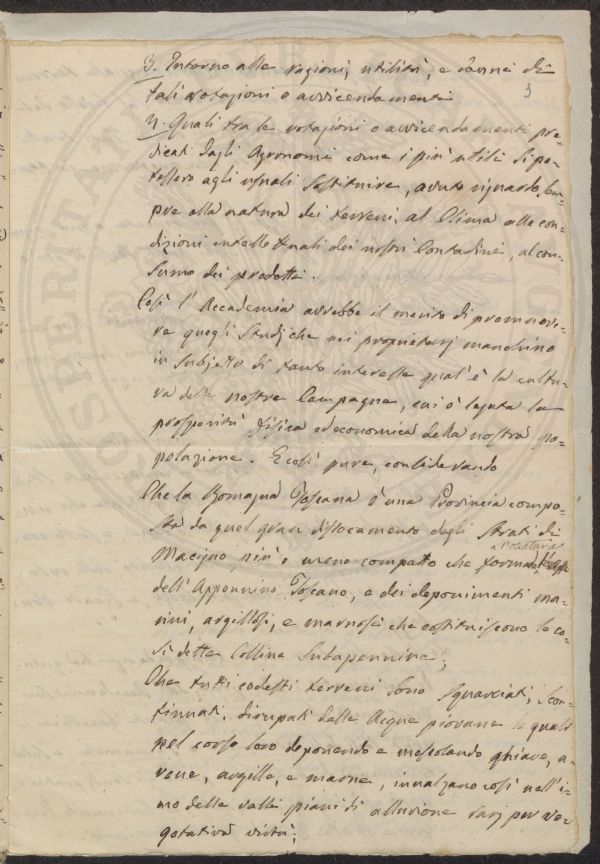 3. Intorno alle ragioni, utilità, e danni di
tali rotazioni o avvicendamenti
3
4. Quali tra le rotazioni o avvicendamenti pre-
dicati dagli Agronomi come i più utili si po-
tessero agli usuali sostituire, avuto riguardo sem-
pre alla natura dei terreni, al Clima alle con-
dizioni intellettuali dei nostri Contadini, al con-
sumo dei prodotti.
Così l'Accademia avrebbe il merito di promuove-
re quegli Studj che nei proprietarj manchino
in subjetto di tanto interesse qual'è la cultu-
ra delle nostre Campagne, cui è legata la
prosperità fisica ed economica della nostra po-
polazione. E così pure, considerando
Che la Romagna Toscana è una Provincia compo-
sta da quel gran dislocamento degli Strati di
Macigno, più o meno compatto che forman
dell'Appennino Toscano, e dei deponimenti ma-
rini, argillosi, e marnosi che costituiscono le co-
sì dette Colline Subapennine;
Che tutti codesti terreni sono squarciati, scon-
tinuati, dirupati dalle Acque piovane le quali
nel corso loro deponendo e mescolando ghiaie, a-
rene, argille, e marne, innalzano così nell'i-
mo delle valli piani di alluvione varj per ve-
getativa virtù;